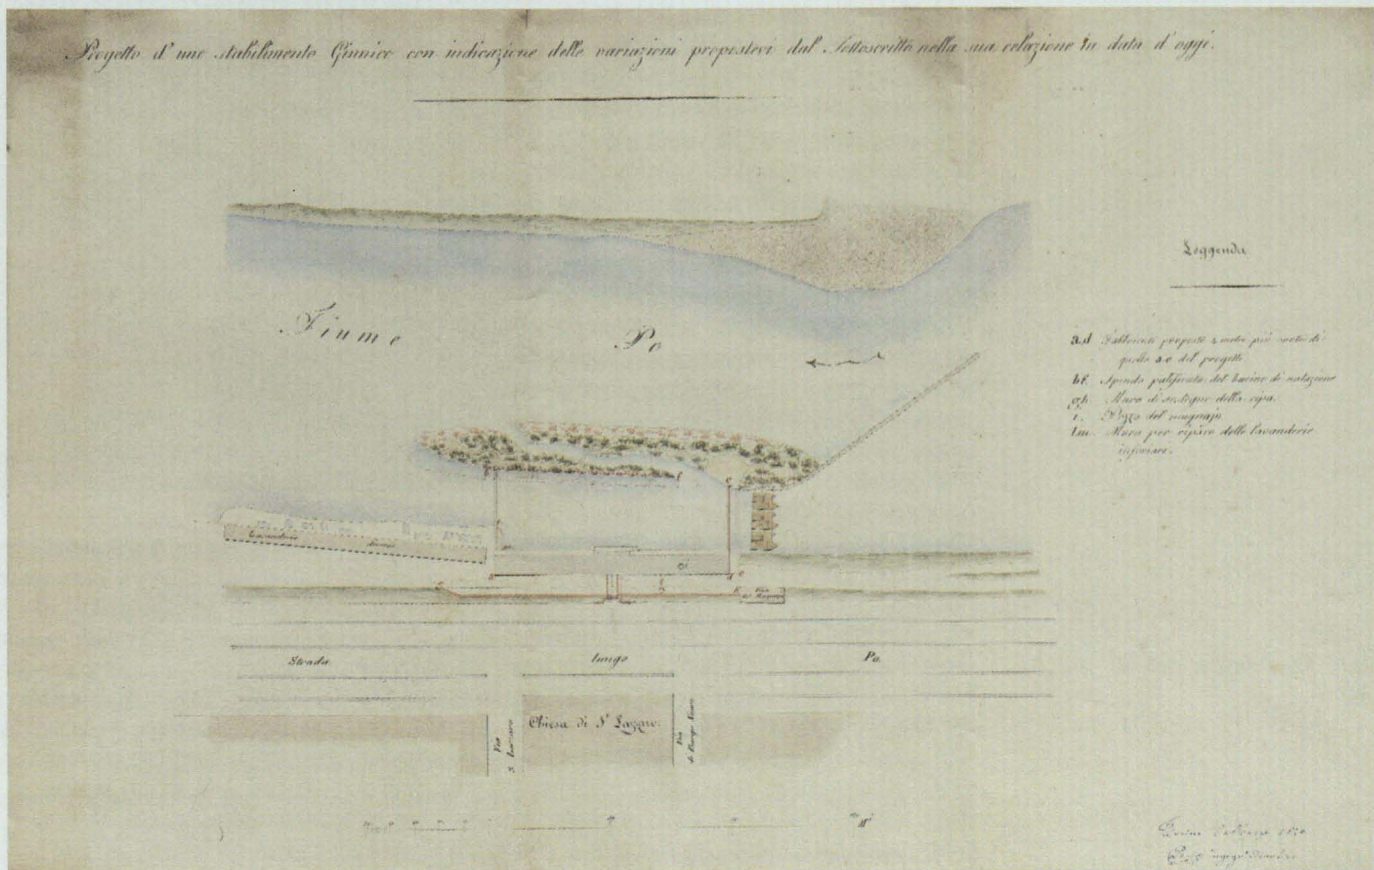 Progetto d'uno stabilimento Ginnico con indicazione delle variazioni propostevi dal Sottoscritto nella sua relazione in data d'oggi.
Leggenda
Fiume Po
a.d Fabbricato proposto 2 metri più verto di
quello a.e del progetto
b.f. Apenda palificata del bacino di natazione
g.h. Muro di sostegno della ripa
i. Pozzo del
l.m. Muro per riparo delle lavanderie
inferiori.
Strada lungo Po
Chiesa di S. Lazzaro
Via
Via
di Borgo Nuovo